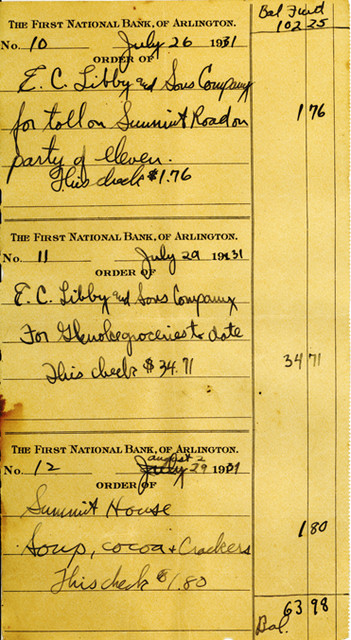 Bal Fwd
THE FIRST NATIONAL BANK, OF ARLINGTON.
102 25
No. 10 July 26 1931
ORDER OF
E. C. Libby and Sons Company
for toll on Summit Road on 1 76
party of eleven.
This check $1.76
THE FIRST NATIONAL BANK, OF ARLINGTON.
No. 11 July 29 1931
ORDER OF
E. C. Libby and Sons Company
For groceries to date
This check $34.71 34 71
THE FIRST NATIONAL BANK, OF ARLINGTON.
august 2
No. 12 July 29 1931
ORDER OF
Summit House
Soup, cocoa + Crackers 1 80
This check $1.80
63 98
Bal.